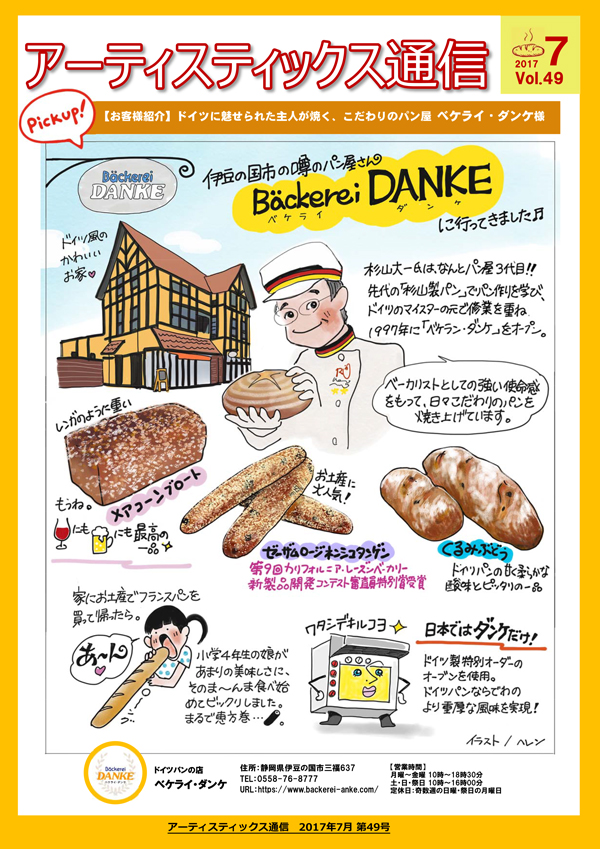 アーティスティックス通信
2017
7
Vol.49
Pickup!
【お客様紹介】ドイツに魅せられた主人が焼く、こだわりのパン屋 ベケライ・ダンケ様
Bäckerei
DANKE
伊豆の国市の噂のパン屋さん
Bäckerei DANKE
ベケライ ダンケ
に行ってきました♬
ドイツ風の
かわいい
お家♥
杉山大一氏は、なんとパン屋3代目!!
先代の「杉山製パン」でパン作りを学び、
ドイツのマイスターの元で修業を重ね
1997年に「ベケラン・ダンケ」をオープン。
ベーカリストとしての強い使命感
をもって、日々こだわりのパンを
焼き上げています。
レンガのように重い
メアコーンブロート
もうね。
にも
にも最高の
一品
お土産に
大人気!
ゼーザムロージネンシュタンゲン
第9回カリフォルニア・レーズンベーカリー
新製品開発コンテスト審査員特別賞受賞
くるみ・ぶどう
ドイツパンの甘く柔らかな
酸味とピッタリの一品
家にお土産でフランスパンを
買って帰ったら。
あ〜ん
小学4年生の娘が
あまりの美味しさに、
そのま〜んま食べ始
めてビックリしました。
まるで恵方巻…
ワタシデキルコヨ
日本ではダンケだけ!
ドイツ製特別オーダーの
オーブンを使用。
ドイツパンならでわの
より重厚な風味を実現!
イラスト/ヘレン
Bäckerei
DANKE
ドイツパンの店
ベケライ・ダンケ
住所:静岡県伊豆の国市三福637
TEL:0558-76-8777
URL:https://www.backerei-anke.com/
【営業時間】
月曜～金曜 10時～18時30分
土・日・祭日 10時～16時00分
定休日:奇数週の日曜・祭日の月曜日
アーティスティックス通信　2017年7月 第49号